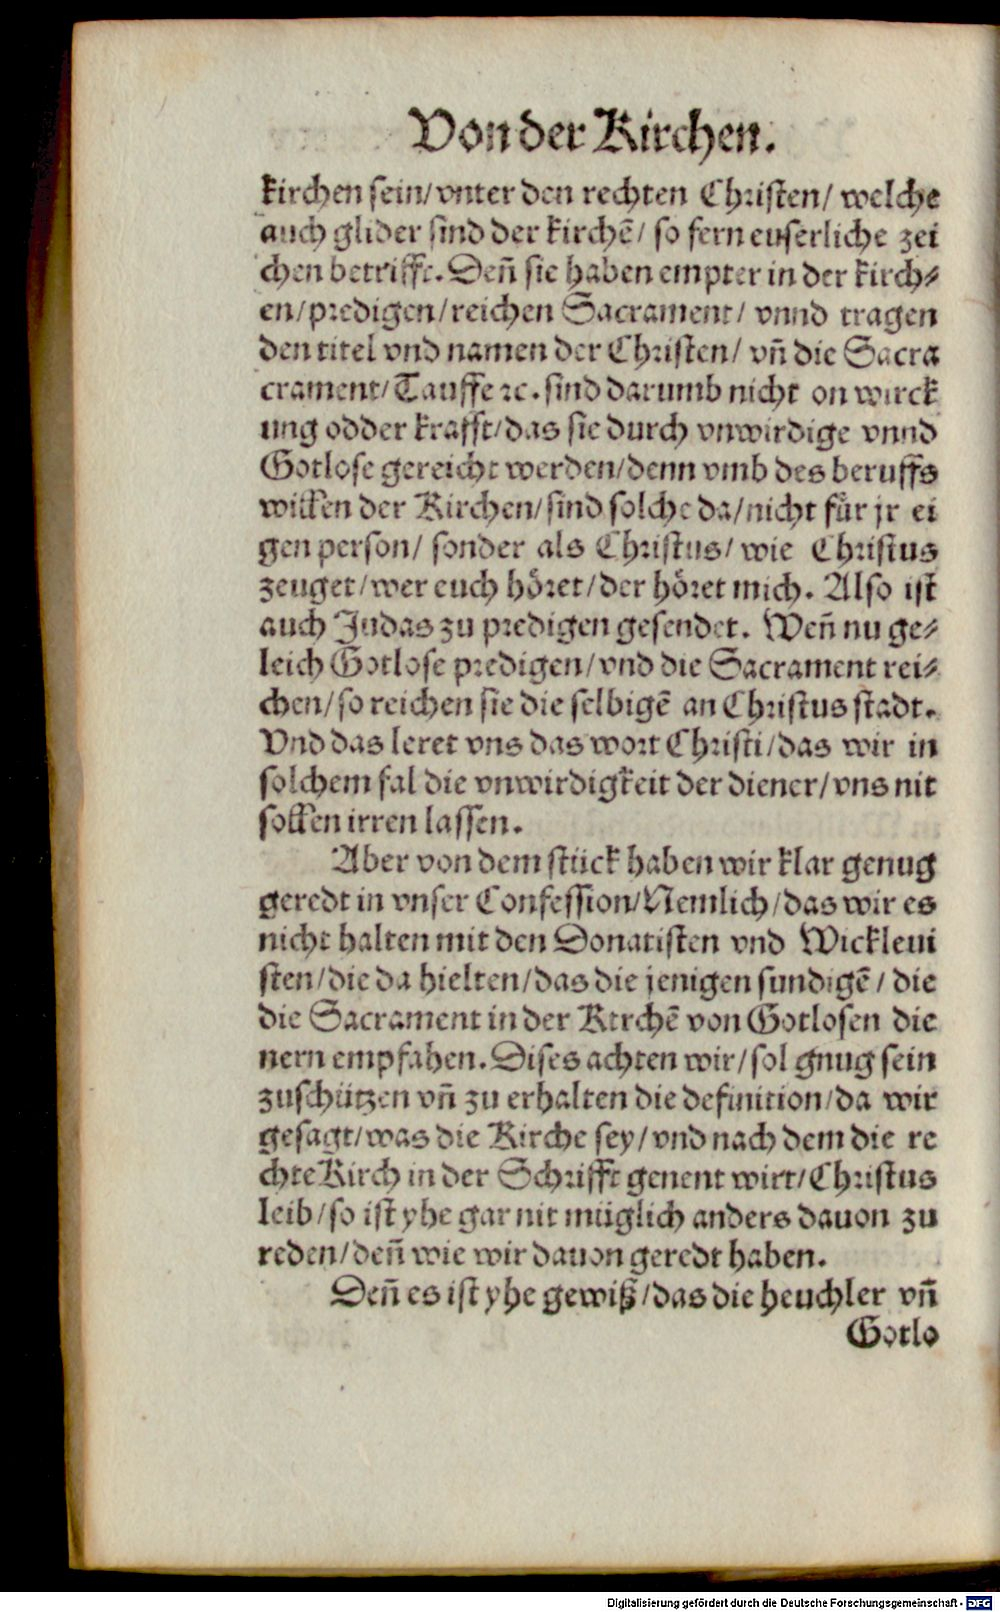 Von der Kirchen.
kirchen sein/ vnter den rechten Christen/ welche
auch glider sind der kirchē/ so fern euserliche zei
chen betrifft. Deñ sie haben empter in der kirch⸗
en/ predigen/ reichen Sacrament/ vnnd tragen
den titel vnd namen der Christen/ vñ die Sacra
crament/ Tauffe ꝛc. sind darumb nicht on wirck
ung odder krafft/ das sie durch vnwirdige vnnd
Gotlose gereicht werden/ denn vmb des beruffs
willen der Kirchen/ sind solche da/ nicht für jr ei
gen person/ sonder als Christus/ wie Christus
zeuget/ wer euch höret/ der höret mich. Also ist
auch Judas zu predigen gesendet. Weñ nu ge⸗
leich Gotlose predigen/ vnd die Sacrament rei⸗
chen/ so reichen sie die selbigē an Christus stadt.
Vnd das leret vns das wort Christi/ das wir in
solchem fal die vnwirdigkeit der diener/ vns nit
sollen irren lassen.
Aber von dem stück haben wir klar genug
geredt in vnser Confession/ Nemlich/ das wir es
nicht halten mit den Donatisten vnd Wickleui
sten/ die da hielten/ das die jenigen sundigē/ die
die Sacrament in der Kirchē von Gotlosen die
nern empfahen. Dises achten wir/ sol gnug sein
zuschützen vñ zu erhalten die definition/ da wir
gesagt/ was die Kirche sey/ vnd nach dem die re
chte Kirch in der Schrifft genent wirt/ Christus
leib/ so ist yhe gar nit müglich anders dauon zu
reden/ deñ wie wir dauon geredt haben.
Deñ es ist yhe gewiß/ das die heuchler vñ
Gotlo
Digitalisierung gefördert durch die Deutsche Forschungsgemeinschaft - DFG